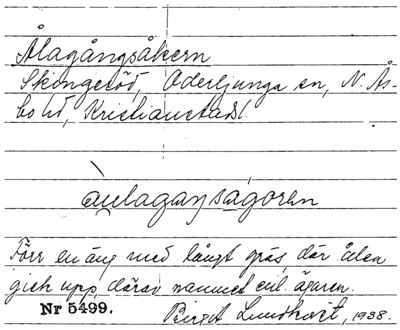 Ålagångsåkern
Skingeröd, Oderljunga sn, N. Ås-
bo hd, Kristianstads l.
àulagaŋsagoren
Förr en äng med långt gräs, där ålen
gick upp, därav namnet enl. ägaren.
Nr 5499. Birgit Lundkvist, 1938.